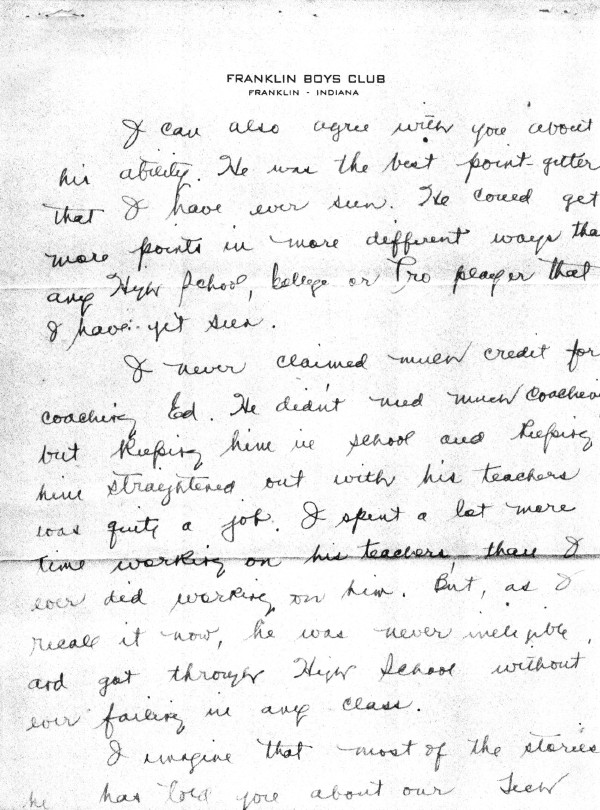 FRANKLIN BOYS CLUB
FRANKLIN - INDIANA
I can also agree with you about
his ability. He was the best point-getter
that I have ever seen. He could get
more points in more different ways tha
any High School, College or Pro player that
I have yet seen.
I never claimed much credit for
coaching Ed. He didn't need much coachin
but keeping him in school and keeping
him straightened out with his teachers
was quite a job. I spent a lot more
time working on his teachers, than I
ever did working on him. But, as I
recall it now, he was never ineligible,
and got through High School without
ever failing in any class.
I imagine that most of the stories
he has told you about our